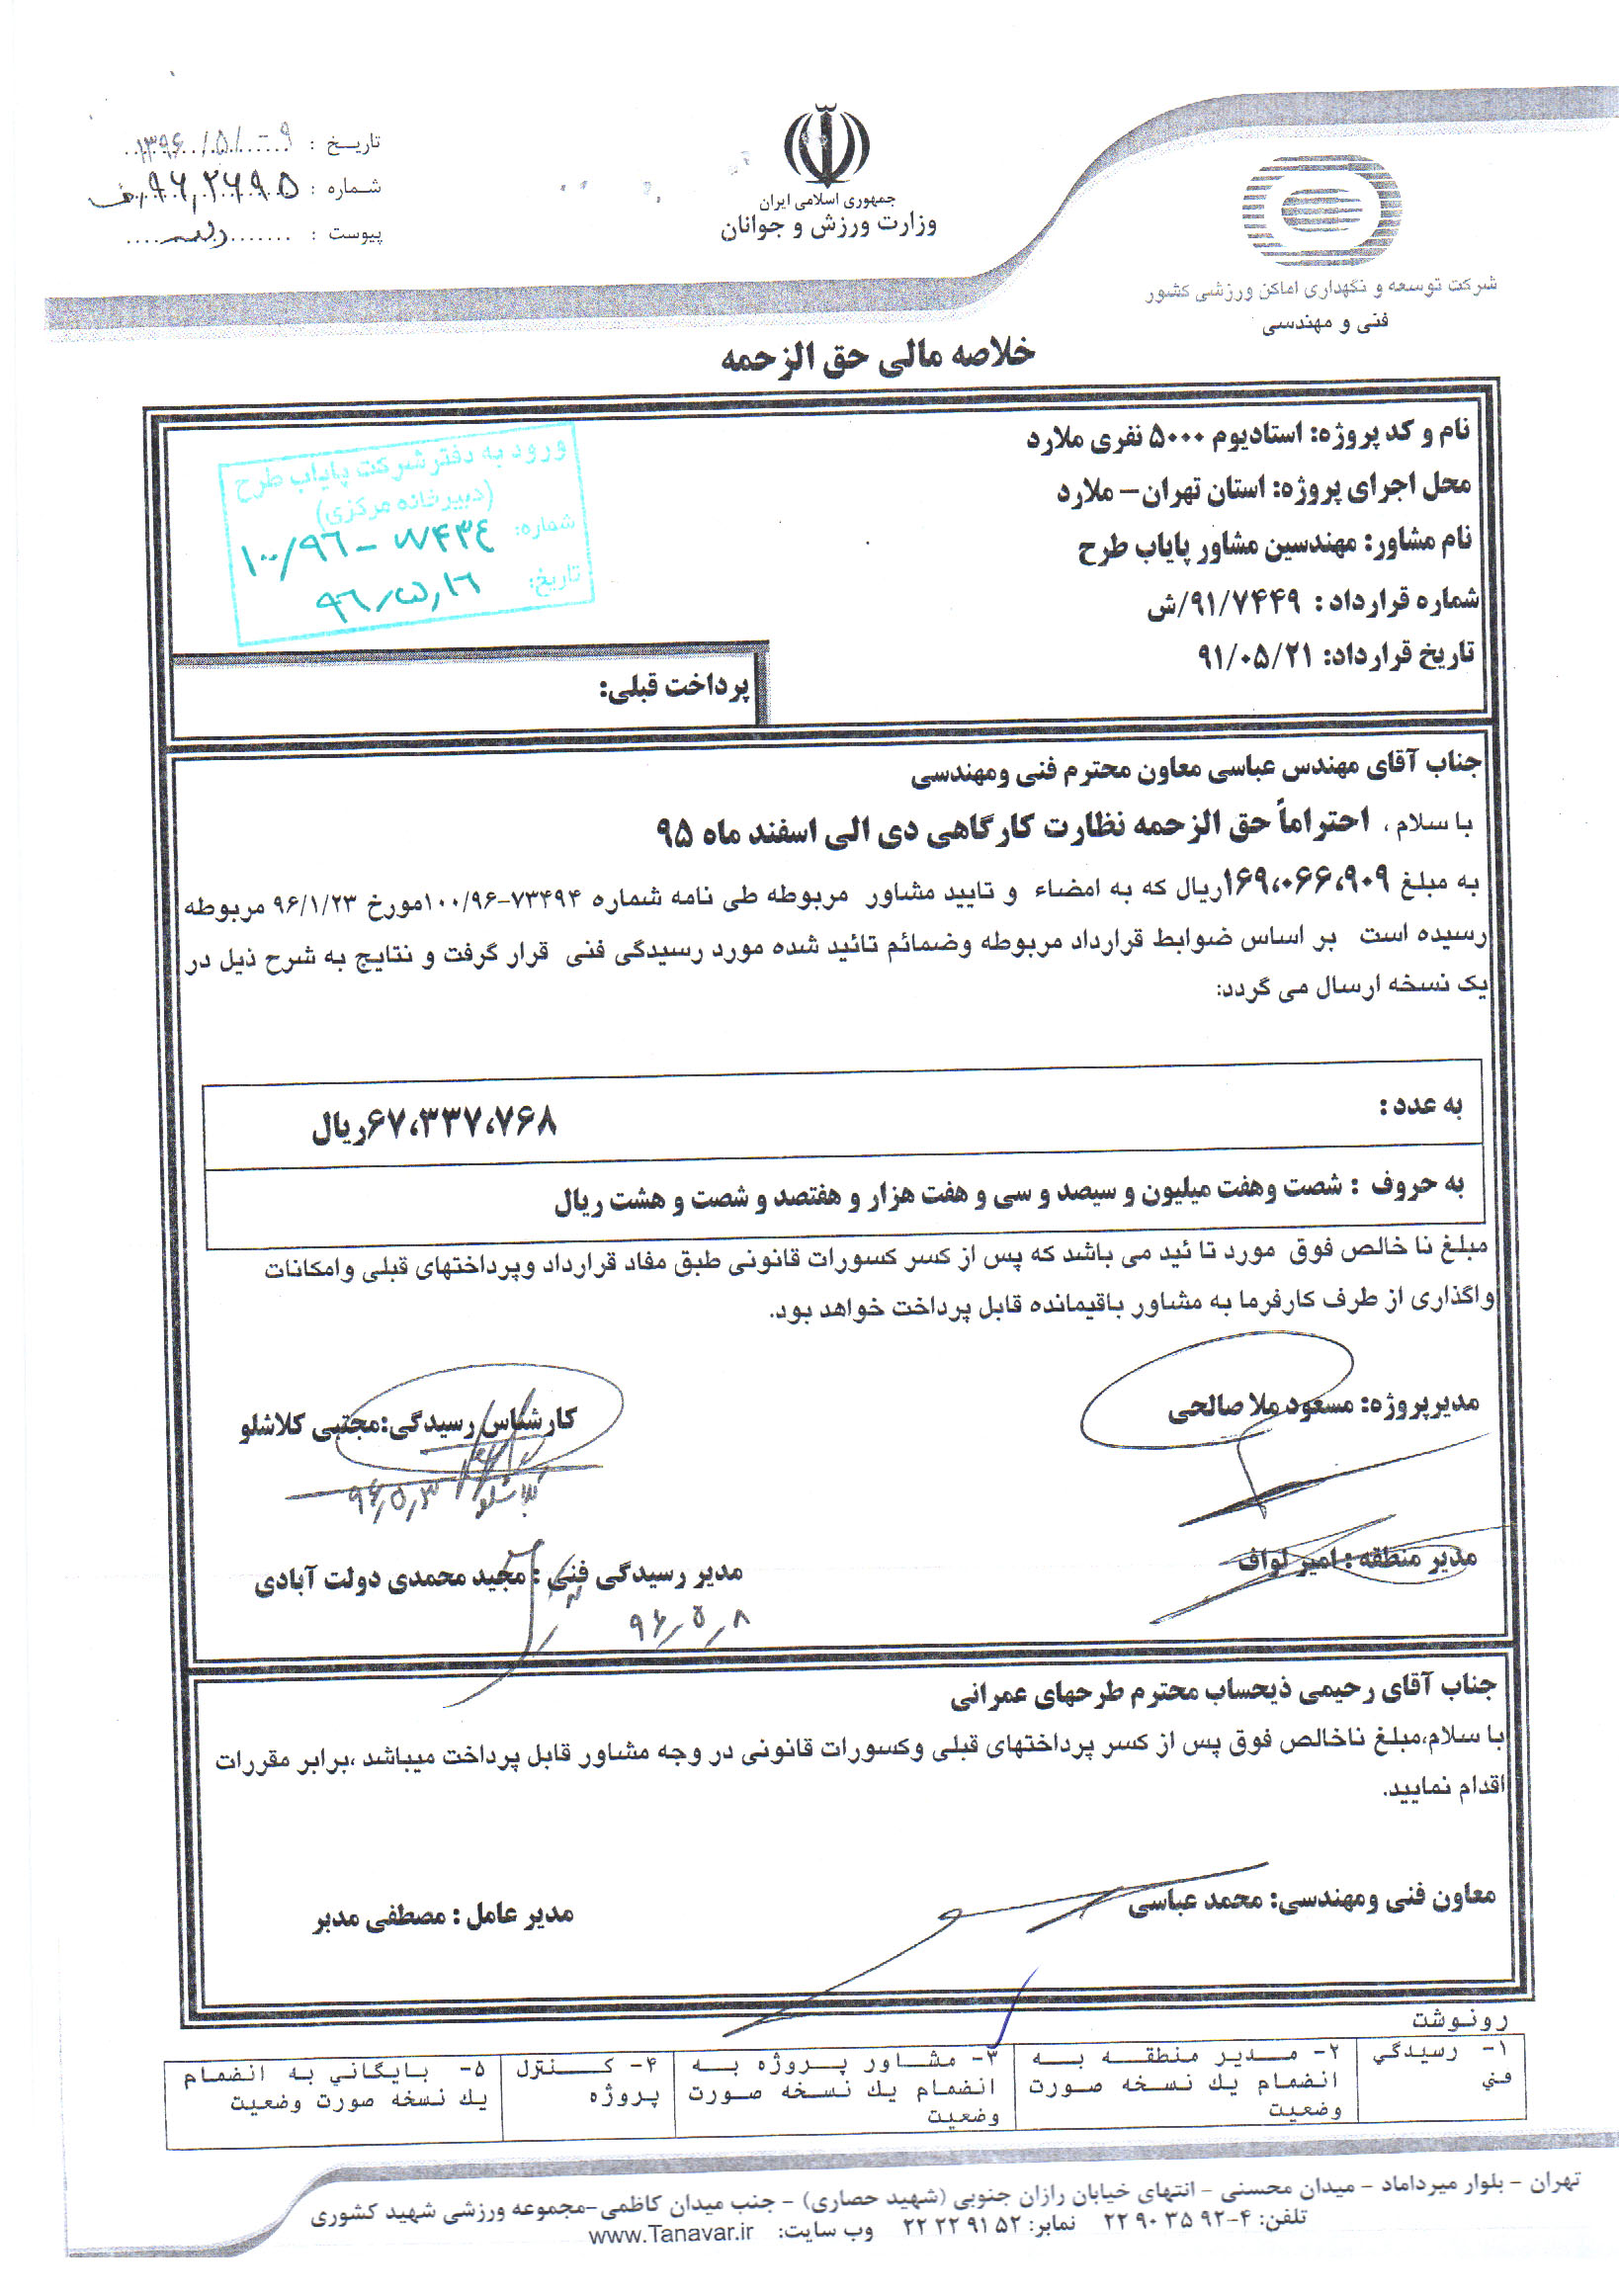 تاریخ : ۱۳۹۶/۵/۰۹
شماره : ۹۶,۲۶۹۵
پیوست :
جمهوری اسلامی ایران
وزارت ورزش و جوانان
شرکت توسعه و نگهداری اماکن ورزشی کشور
فنی و مهندسی
خلاصه مالی حق الزحمه
نام و کد پروژه: استادیوم ۵۰۰۰ نفری ملارد
محل اجرای پروژه: استان تهران – ملارد
نام مشاور: مهندسین مشاور پایاب طرح
شماره قرارداد : ۹۱/۷۴۴۹/ش
تاریخ قرارداد: ۹۱/۰۵/۲۱
ورود به دفتر شرکت پایاب طرح
(دبیرخانه مرکزی)
شماره: ۱۰۰/۹۶ – ۷۷۴۳۴
تاریخ: ۹۶,۵,۱۶
پرداخت قبلی:
جناب آقای مهندس عباسی معاون محترم فنی ومهندسی
با سلام ، احتراماً حق الزحمه نظارت کارگاهی دی الی اسفند ماه ۹۵
به مبلغ ۱۶۹،۰۶۶،۹۰۹ریال که به امضاء و تایید مشاور مربوطه طی نامه شماره ۷۳۴۹۴-۱۰۰/۹۶مورخ ۹۶/۱/۲۳ مربوطه
رسیده است بر اساس ضوابط قرارداد مربوطه وضمائم تائید شده مورد رسیدگی فنی قرار گرفت و نتایج به شرح ذیل در
یک نسخه ارسال می گردد:
به عدد : ۶۷،۳۳۷،۷۶۸ریال
به حروف : شصت وهفت میلیون و سیصد و سی و هفت هزار و هفتصد و شصت و هشت ریال
مبلغ نا خالص فوق مورد تا ئید می باشد که پس از کسر کسورات قانونی طبق مفاد قرارداد وپرداختهای قبلی وامکانات
واگذاری از طرف کارفرما به مشاور باقیمانده قابل پرداخت خواهد بود.
مدیرپروژه: مسعود ملا صالحی
کارشناس رسیدگی:مجتبی کلاشلو
کلاشلو ۹۶,۵,۳
مدیر منطقه : امیر لواف
مدیر رسیدگی فنی : مجید محمدی دولت آبادی
۹۶,۵,۸
جناب آقای رحیمی ذیحساب محترم طرحهای عمرانی
با سلام،مبلغ ناخالص فوق پس از کسر پرداختهای قبلی وکسورات قانونی در وجه مشاور قابل پرداخت میباشد ،برابر مقررات
اقدام نمایید.
معاون فنی ومهندسی: محمد عباسی
مدیر عامل : مصطفی مدبر
رونوشت
۱- رسیدگي فني
۲- مدیر منطقه به انضمام یك نسخه صورت وضعیت
۳- مشاور پروژه به انضمام یك نسخه صورت وضعیت
۴- کنترل پروژه
۵- بایگاني به انضمام یك نسخه صورت وضعیت
تهران – بلوار میرداماد – میدان محسنی – انتهای خیابان رازان جنوبی (شهید حصاری) – جنب میدان کاظمی–مجموعه ورزشی شهید کشوری
تلفن: ۴-۹۲ ۳۵ ۹۰ ۲۲ نمابر: ۵۲ ۹۱ ۲۲ ۲۲ وب سایت: www.Tanavar.ir